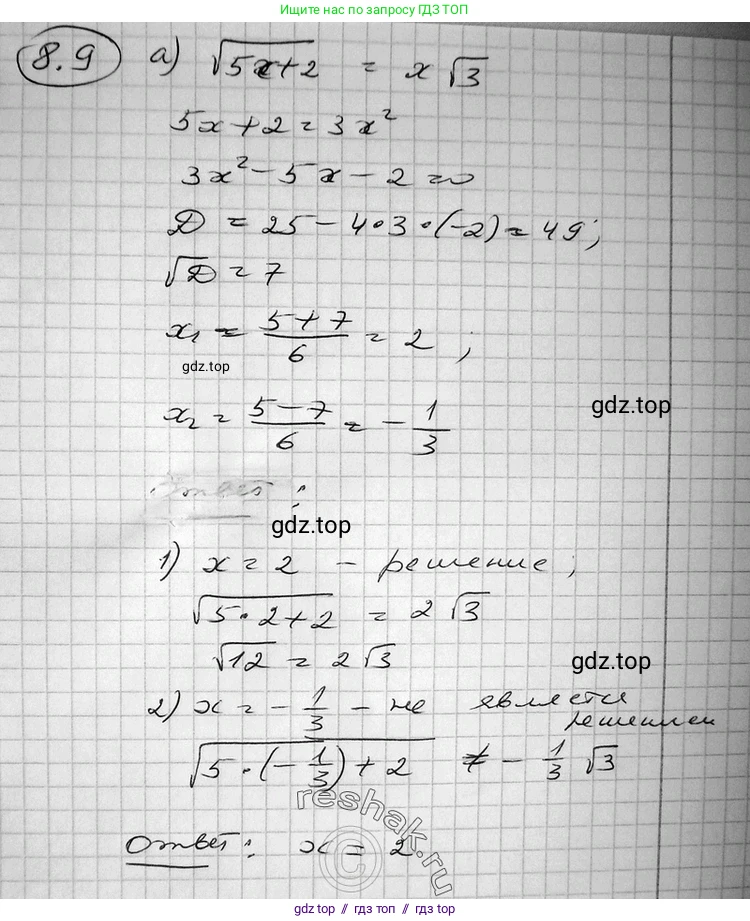 Ищите нас по запросу ГДЗ ТОП
8.9 а) √(5x+2) = x√3
5x+2=3x²
3x²-5x-2=0
D = 25-4·3·(-2)=49;
√D = 7
x₁ = (5+7)/6 = 2 ;
gdz.top
x₂ = (5-7)/6 = -1/3
gdz.top
Ответ :
gdz.top
1) x=2 - решение ;
√(5·2+2) = 2√3
√12 = 2√3
gdz.top
2) x=-1/3 - не является решением
√(5·(-1/3)+2) ≠ -1/3 √3
reshak.ru
©
Ответ: x=2
gdz.top // гдз топ // гдз.top